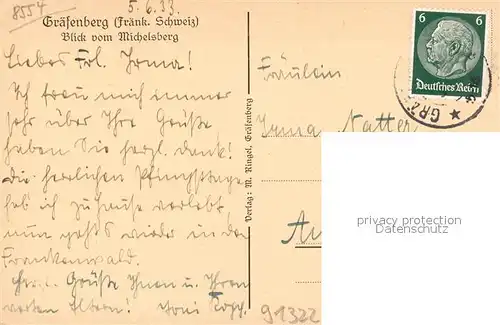 8554
5.6.33.
Gräfenberg (Fränk. Schweiz)
Blick vom Michelsberg
Liebes Frl. Irma!
Ich freu mich immer
sehr über Ihre Grüße
haben Sie herzl. Dank!
Die herrlichen Pfingsttage
hab ich zu Hause verlebt
nun geht's wieder in den
Frankenwald.
Herzl. Grüße Ihnen u. Ihren
werten Eltern!
Verlag: M. Ringel, Gräfenberg
6 6
Deutsches Reich
GRÄ
Fräulein
Irma Natter
privacy protection
Datenschutz
91322